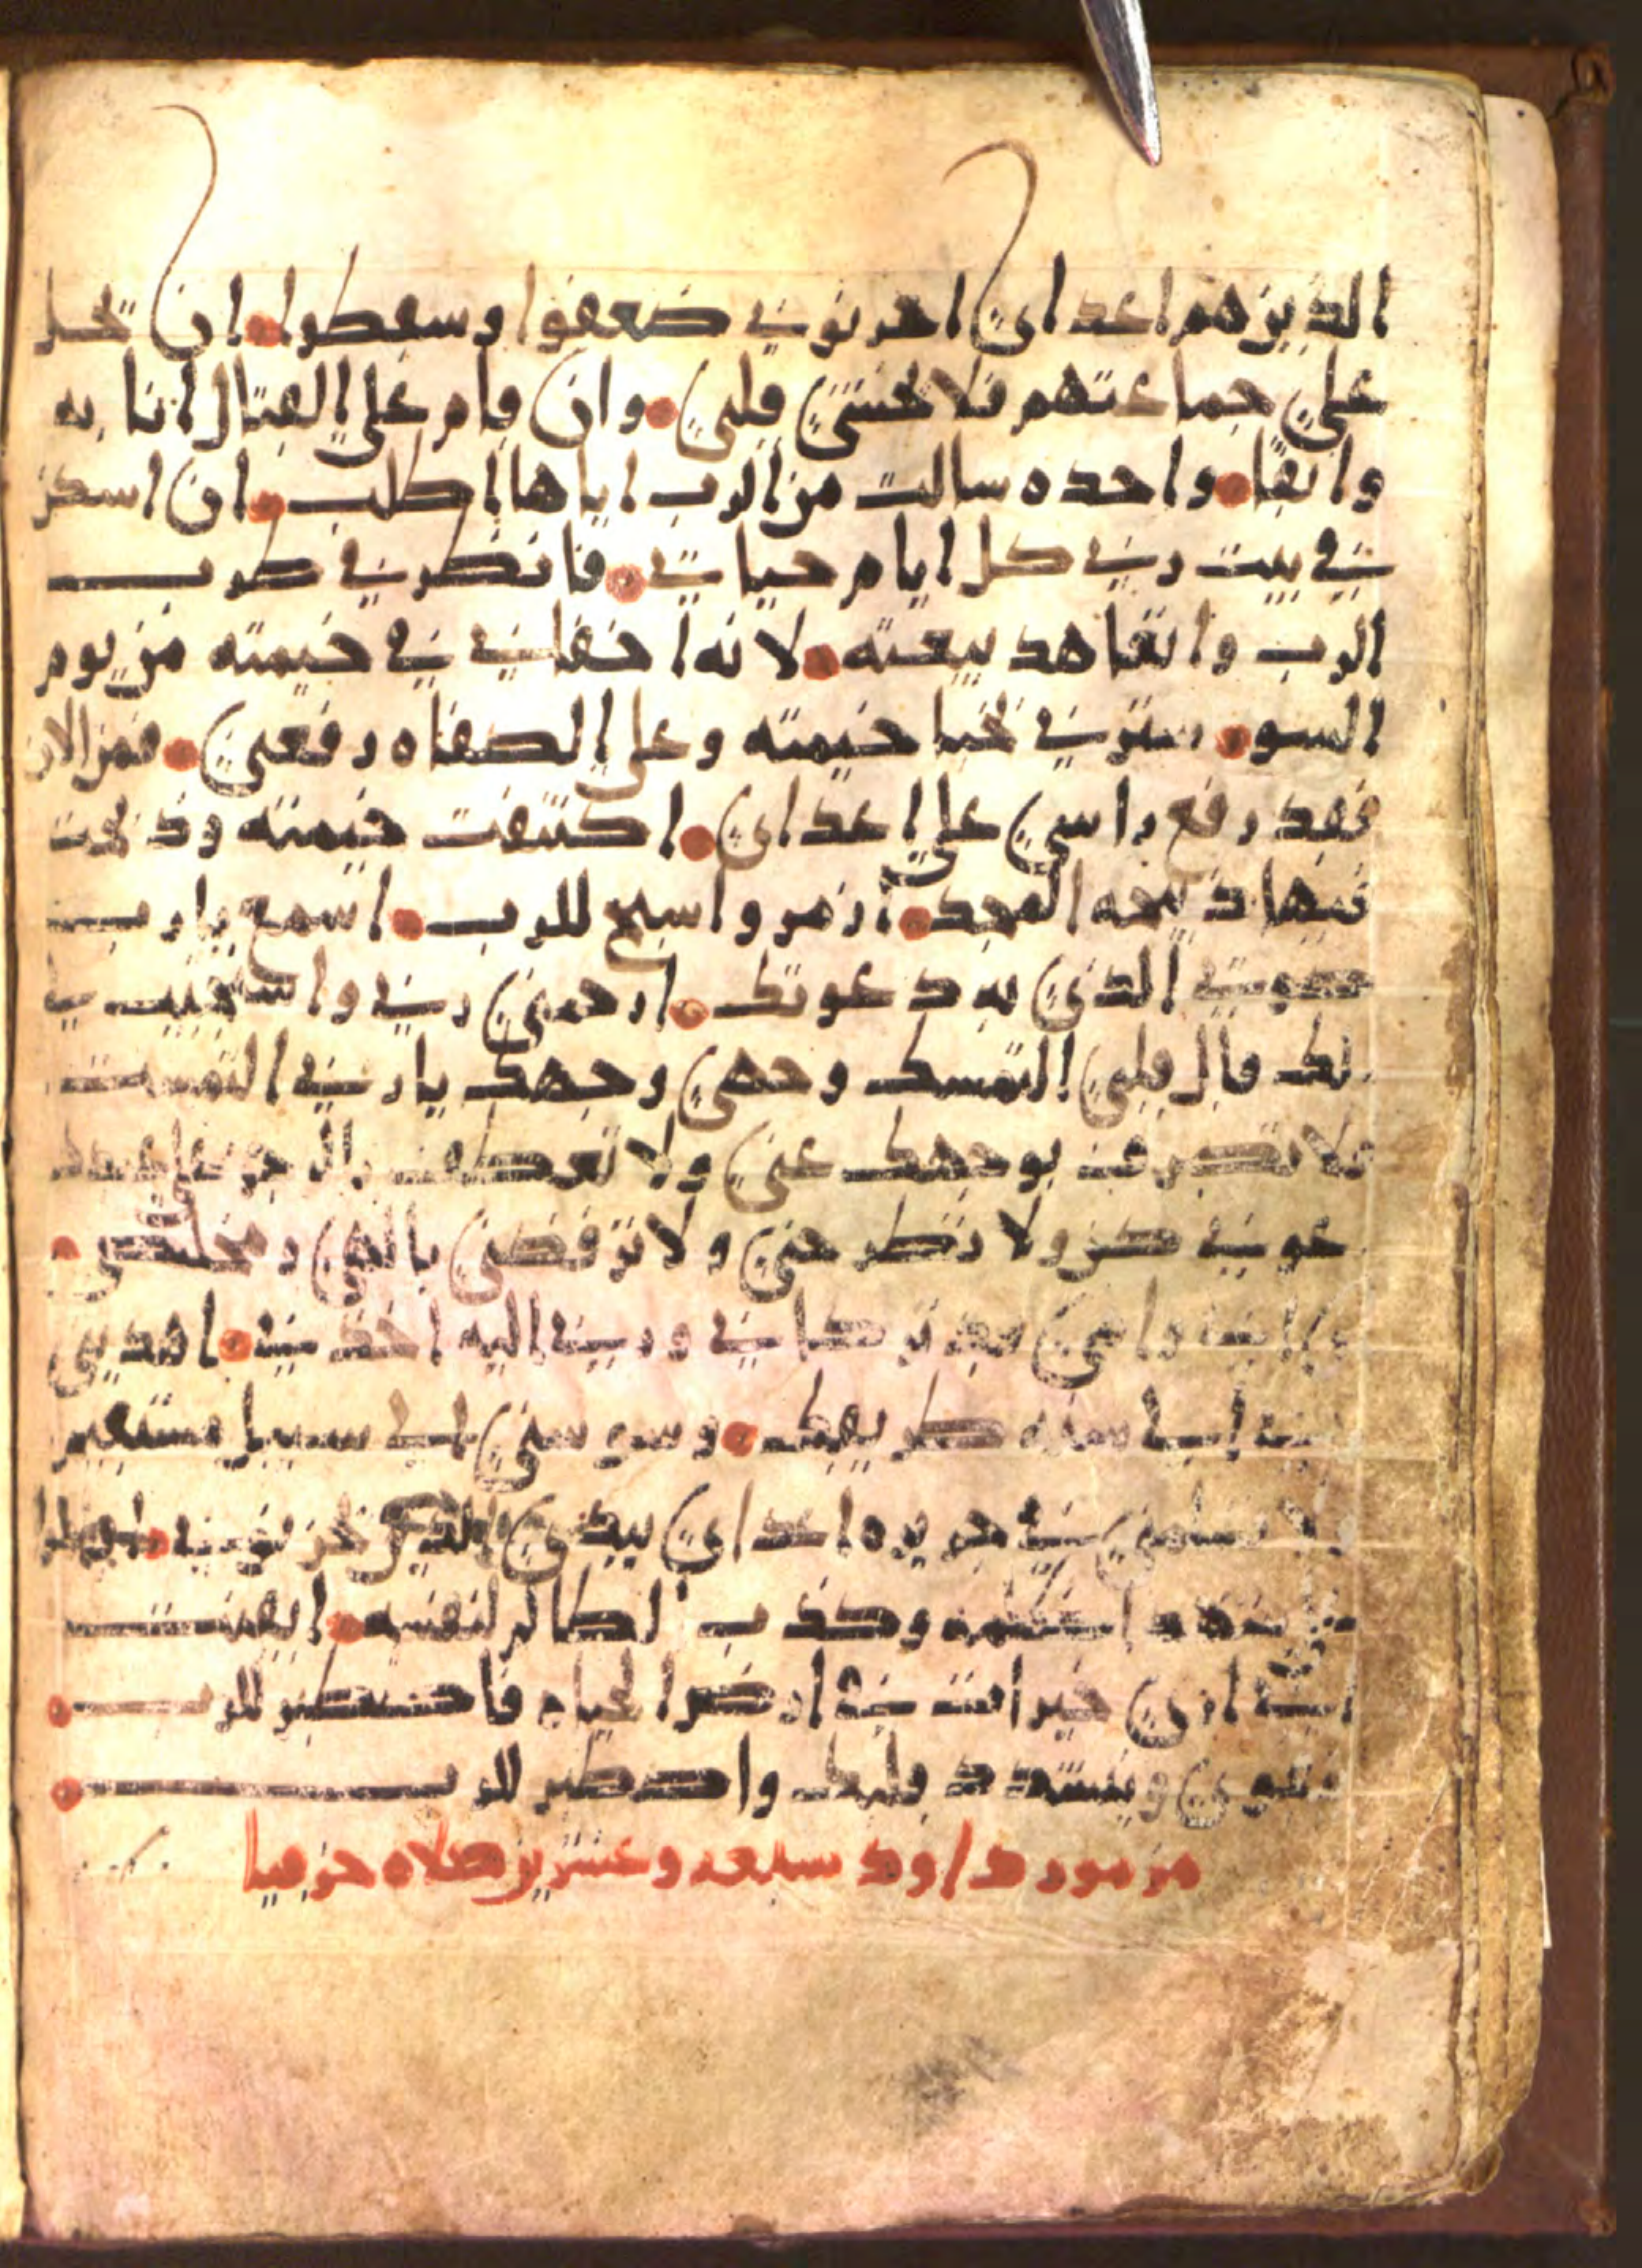 الذين هم اعداى احزنوني ضعفوا وسقطوا ان تحل
على جماعتهم فلا يخشى قلبي وان قام على القتال انا به
واثقا واحده سالت من الرب اياها اطلب ان اسكن
في بيت ربي كل ايام حياتي فانظر في طرب
الرب واتعاهد بيعته لانه اخفاني في خيمته من يوم
السو سترني بخبا خيمته وعلى الصفاه رفعني فمن الان
فقد رفع راسي على اعداى اكتنفت خيمته وذبحت
فيها ذبيحه المجد ازمر واسبح للرب اسمع يا رب
صوتي الذي به دعوتك ارحمني ربي واستجيب لي
لك قال قلبي التمسك وجهي وجهك يا ربي التمست
فلا تصرف بوجهك عني ولا تعطف بالرجز على عبدك
عوني كن ولا تطرحني ولا ترفضني يا الهي مخلصي
ابي وامي قد تركاني وربي اليه اخذني اهديني
سنه طريقك وسوسني في سبيل مستقيم
تسلمني في اعداى الذين يحزنوني
شهد وكذب الظالم لنفسه ايقنت
اني ارى خيراتك في ارض الحياه فاصطبر للرب
فيقوى ويتشدد قلبك واصطبر للرب
مزمور داود سبعه وعشرين صلاه حزقيا